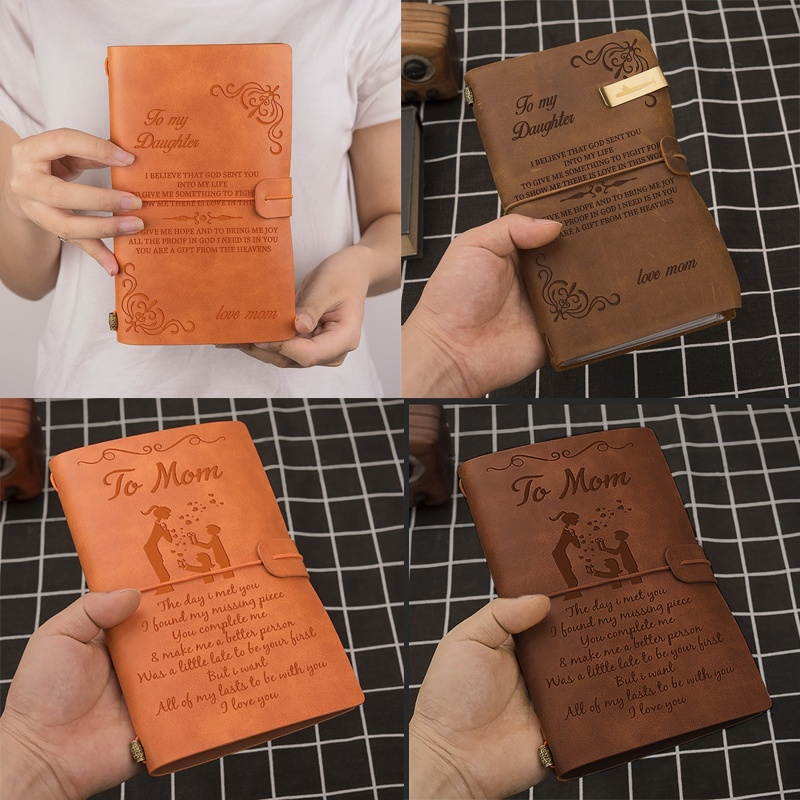 To my
Daughter
I BELIEVE THAT GOD SENT YOU
INTO MY LIFE
TO GIVE ME SOMETHING TO FIGHT
ME THERE IS LOVE IN
GIVE ME HOPE AND TO BRING ME JOY
ALL THE PROOF IN GOD I NEED IS IN YOU
YOU ARE A GIFT FROM THE HEAVENS
love mom
To my
Daughter
I BELIEVE THAT GOD SENT YOU
INTO MY LIFE
TO GIVE ME SOMETHING TO FIGHT FOR
TO SHOW ME THERE IS LOVE IN THIS
GIVE ME HOPE AND TO BRING ME JOY
PROOF IN GOD I NEED IS IN YOU
ARE A GIFT FROM THE HEAVENS
love mom
To Mom
The day i met you
I found my missing piece
You complete me
& make me a better person
Was a little late to be your first
But i want
All of my lasts to be with you
I love you
To Mom
The day i met you
I found my missing piece
You complete me
& make me a better person
Was a little late to be your first
But i want
All of my lasts to be with you
I love you